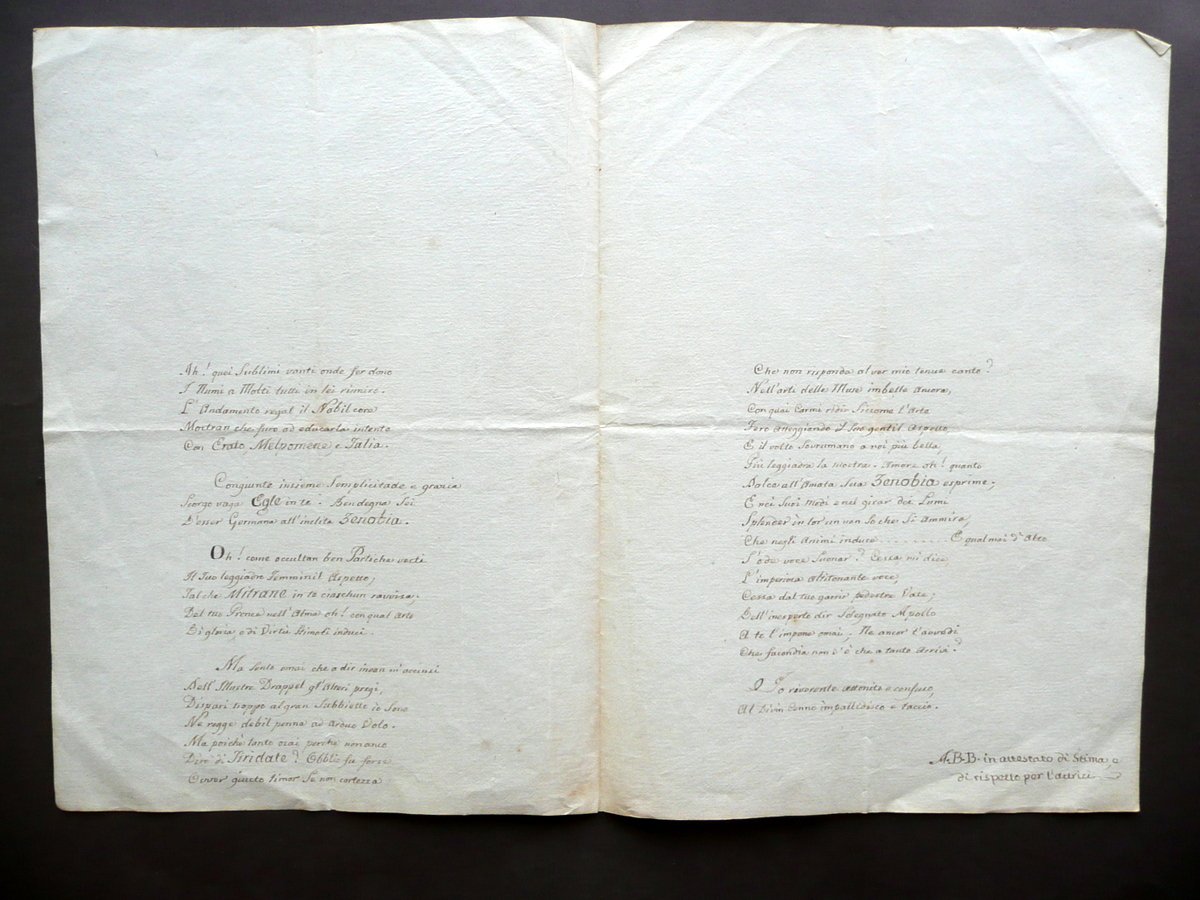 Ah! quei Sublimi vanti onde fer dono
I Numi a Molti tutti in lei rimire.
L'Andamento regal il Nobil core
Mostran che furo ad educarla intento
Con Erato Melpomene e Talia.
Congiunte insieme Semplicitade e grazia
Scorgo vaga Egle in te. Ben degna Sei
D'esser Germana all'inclita Zenobia.
Oh! come occultan ben Partiche vesti
Il Tuo leggiadro Femminil Aspetto,
Tal che Mitrane in te ciaschun ravvisa;
Del tuo Prence nell'Alma oh! con qual Arte
Di gloria, e di Virtù Stimoli induci.
Ma Sento omai che a dir invan m'accinsi
Dell'Illustre Drappel gl'Alteri pregi,
Dispari troppo al gran Subbietto io Sono
Ne regge debil penna ad Arduo Volo.
Ma poichè tanto osai perchè non anco
Dirò di Tiridate? Obblio fu forse
Ovver giusto timor Se non certezza
Che non risponda al ver mio tenue canto?
Nell'arti delle Muse imbelle Ancora,
Con quai Carmi ridir Siccome l'Arte
Fero Atteggiando il Suo gentil Aspetto
E il volto Sovrumano a noi più bella
Più leggiadra la mostra. Amore oh! quanto
Dolce all'Amata Sua Zenobia esprime;
E nei Suoi modi e nel girar dei Lumi
Splender in lor un non So che Si Ammira,
Che negli Animi induce ........ E qual mai d'Alto
S'ode voce Suonar? Cessa mi dice
L'imperiosa Altitonante voce,
Cessa dal tuo garrir pedestre Vate;
Dell'inesperto dir Sdegnato Apollo
A te l'impone omai; Ne ancor t'avvedi
Che facondia non v'è che a tanto Arrivi?
Io riverente attonito e confuso,
Al Divin Cenno impallidisco e taccio.
A.B.B. in attestato di Stima e
di rispetto per l'attrici